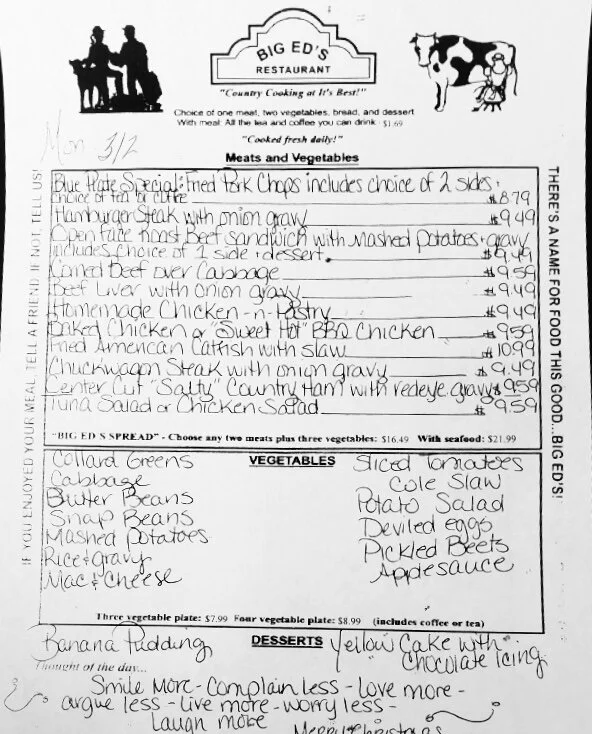 BIG ED'S
RESTAURANT
"Country Cooking at It's Best!"
Choice of one meat, two vegetables, bread, and dessert
With meal: All the tea and coffee you can drink $1.69
"Cooked fresh daily!"
Mon 3/2
Meats and Vegetables
Blue Plate Special: Fried Pork Chops includes choice of 2 sides,
choice of tea or coffee $8.79
Hamburger Steak with onion gravy $9.49
Open face Roast Beef Sandwich with Mashed Potatoes + gravy
includes choice of 1 side + dessert. $9.49
Corned Beef over Cabbage $9.59
Beef Liver with onion gravy $9.49
Homemade Chicken -n- Pastry $9.49
Baked Chicken or "Sweet Hot" BBQ Chicken $9.59
Fried American Catfish with slaw $10.99
Chuckwagon Steak with onion gravy $9.49
Center Cut "Salty" Country Ham with redeye gravy $9.59
Tuna Salad or Chicken Salad $9.59
"BIG ED'S SPREAD" - Choose any two meats plus three vegetables: $16.49 With seafood: $21.99
IF YOU ENJOYED YOUR MEAL, TELL A FRIEND. IF NOT, TELL US!
THERE'S A NAME FOR FOOD THIS GOOD...BIG ED'S!
VEGETABLES
Collard Greens
Cabbage
Butter Beans
Snap Beans
Mashed Potatoes
Rice + gravy
Mac & Cheese
Sliced Tomatoes
Cole Slaw
Potato Salad
Deviled eggs
Pickled Beets
Applesauce
Three vegetable plate: $7.99 Four vegetable plate: $8.99 (includes coffee or tea)
DESSERTS
Banana Pudding
Yellow Cake with
Chocolate Icing
Thought of the day...
Smile More - Complain less - Love more -
argue less - Live more - worry less -
Laugh more
Merry Christmas